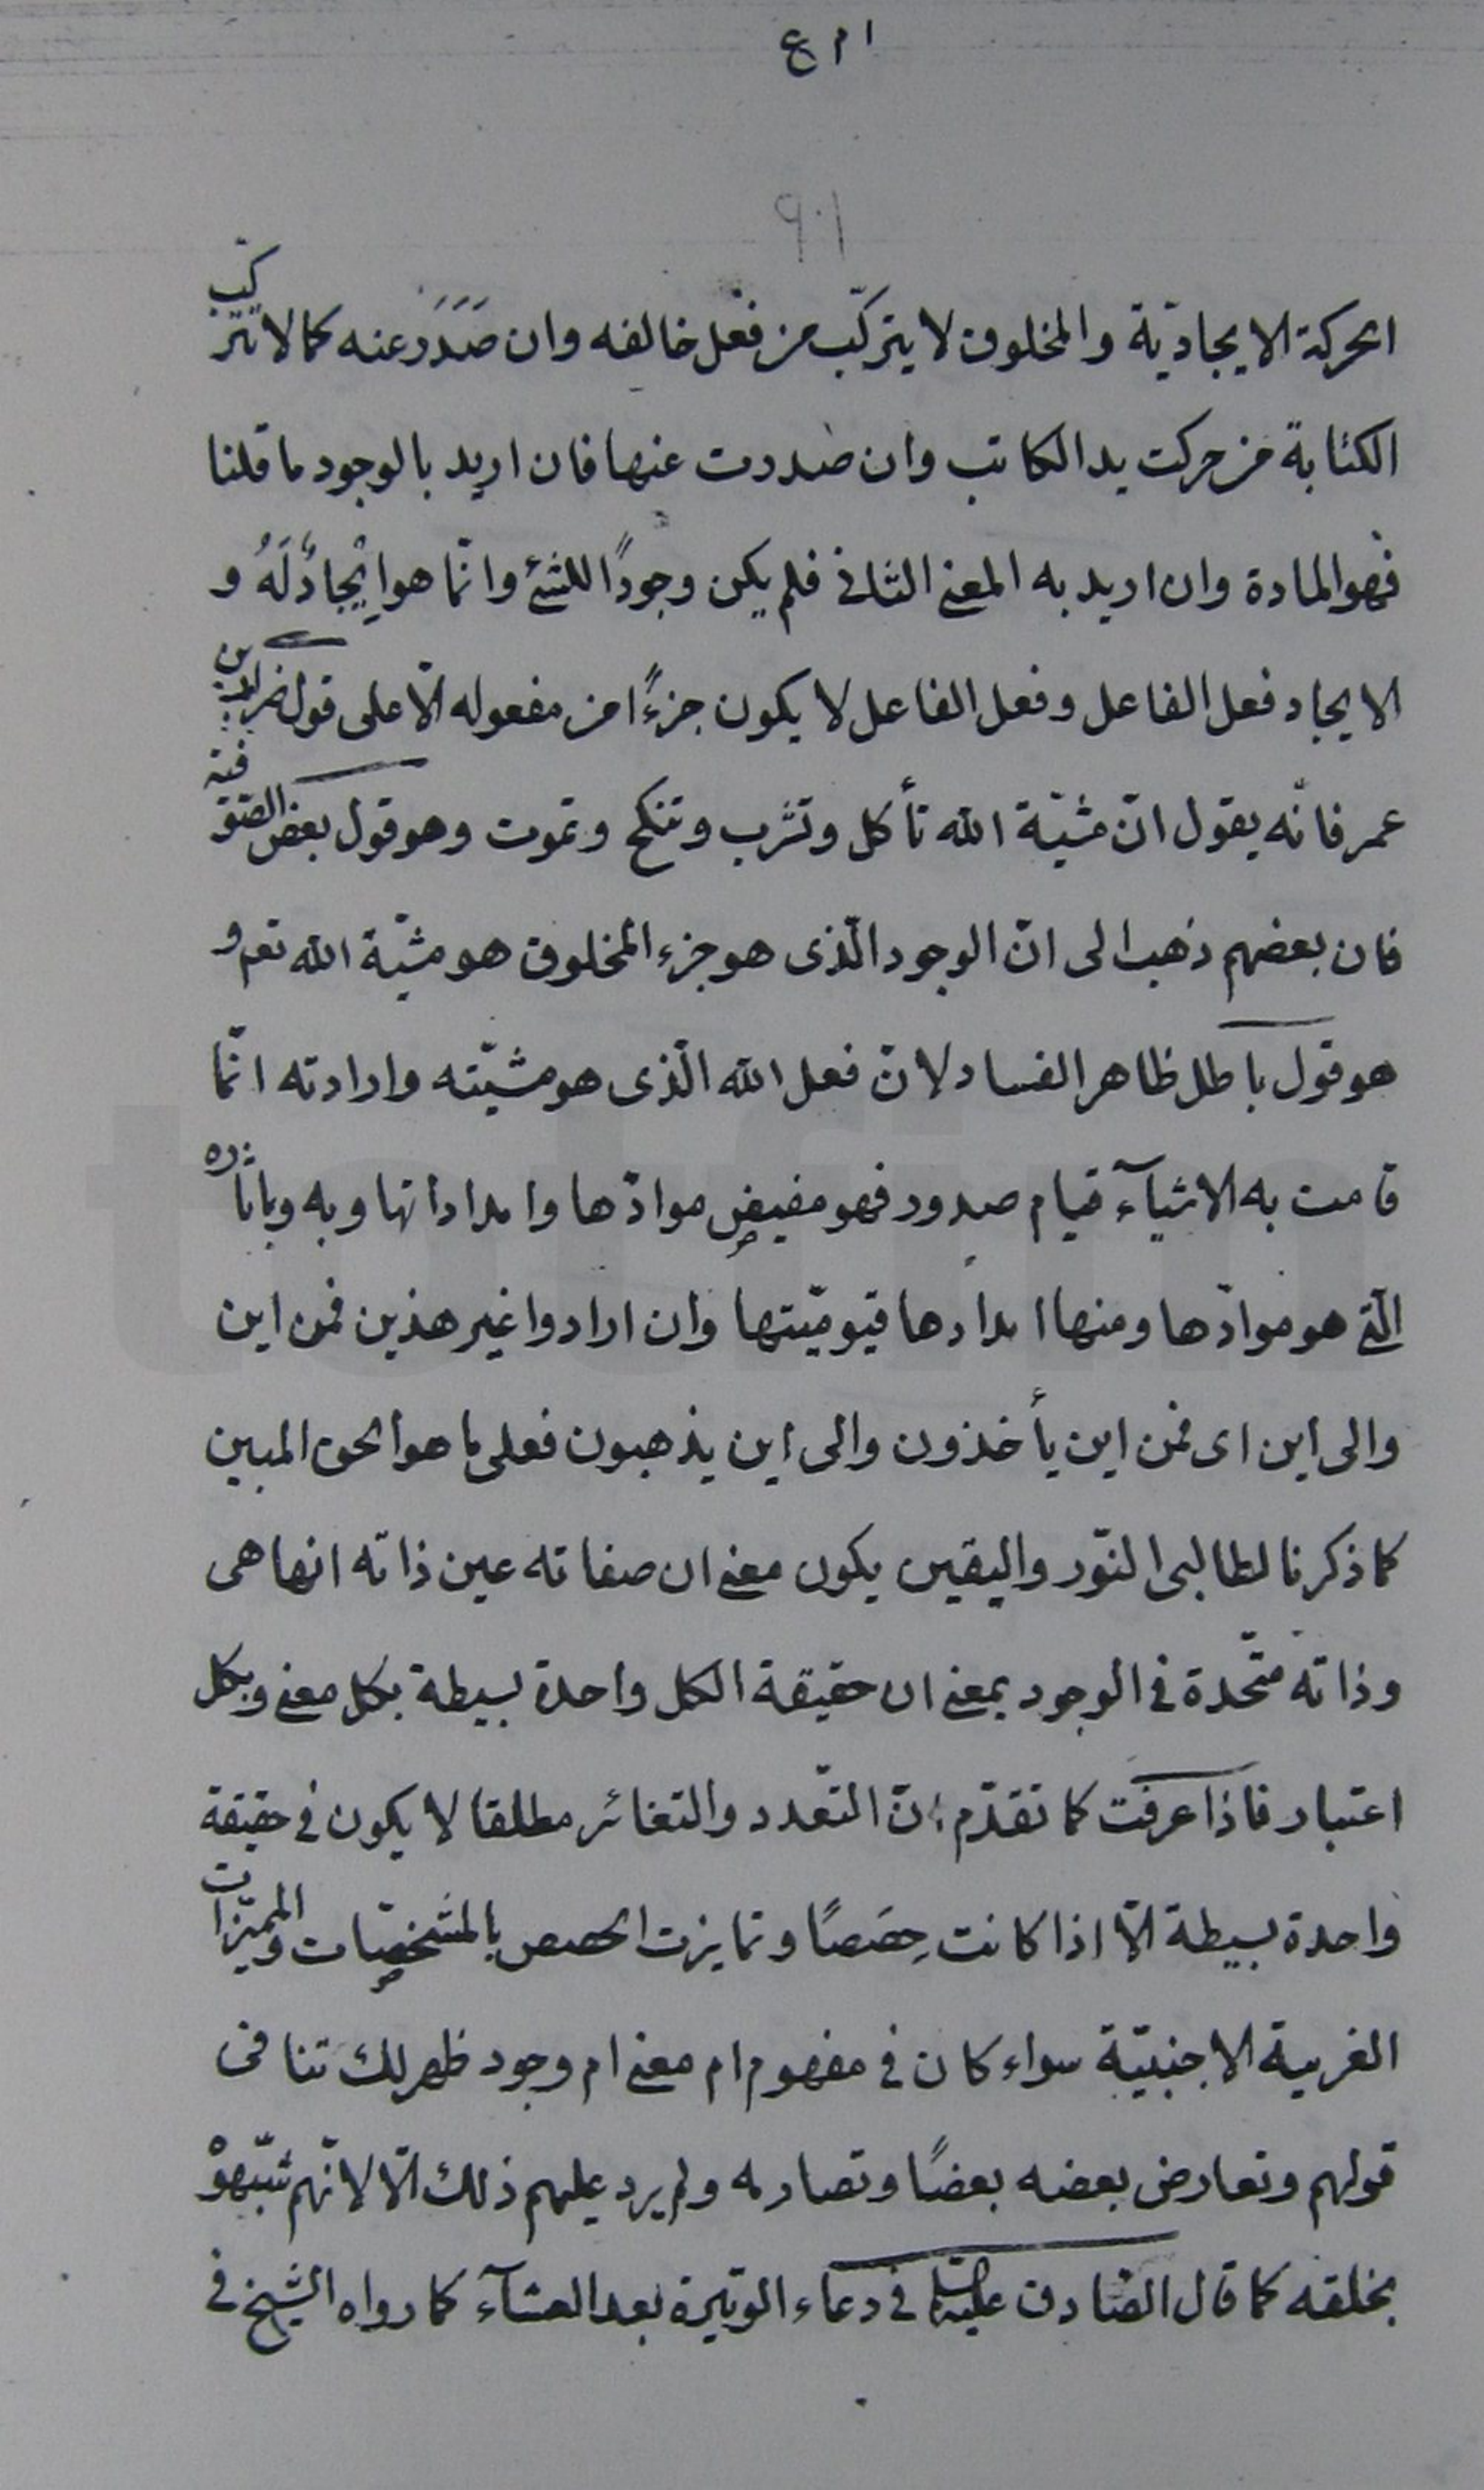 ١٠٩
الحركة الايجاديّة والمخلوق لا يتركّب من فعل خالقه وان صَدَرَ عنه كما لا تتركّب
الكتابة من حركت يد الكاتب وان صدرت عنها فان اريد بالوجود ما قلنا
فهو المادة وان اريد به المعنى الثانى فلم يكن وجودًا للشئ وانّما هو ايْجادٌ لَهُ و
الايجاد فعل الفاعل وفعل الفاعل لا يكون جزءًا من مفعوله الّا على قول ضرار بن
عمر فانّه يقول انّ مشيّة الله تأكل وتشرب وتنكح وتموت وهو قول بعض الصّوفيّة
فان بعضهم ذهب الى انّ الوجود الّذى هو جزء المخلوق هو مشيّة الله تعم و
هو قول باطل ظاهر الفساد لانّ فعل الله الّذى هو مشيّته وارادته انّما
قامت به الاشيآء قيام صدور فهو مفيض موادّها وامداداتها وبه وباثاره
الّتى هو موادّها ومنها امدادها قيوميّتها وان ارادوا غير هذين فمن اين
والى اين اى فمن اين يأخذون والى اين يذهبون فعلى ما هو الحق المبين
كما ذكرنا لطالبى النّور واليقين يكون معنى ان صفاته عين ذاته انها هى
وذاته متّحدة فى الوجود بمعنى ان حقيقة الكل واحدة بسيطة بكل معنى وبكل
اعتبار فاذا عرفت كما تقدّم انّ التعّدد والتغائر مطلقا لا يكون فى حقيقة
واحدة بسيطة الّا اذا كانت حِصَصًا وتمايزت الحصص بالمشخصّات والمميّزات
الغريبة الاجنبيّة سواء كان فى مفهوم ام معنى ام وجود ظهر لك تنافى
قولهم وتعارض بعضه بعضًا وتصادمه ولم يرد عليهم ذلك الّا لانّهم شبّهوْه
بخلقه كما قال الصّادق عليه السّلام فى دعاء الوتيرة بعد العشآء كما رواه الشيخ فى